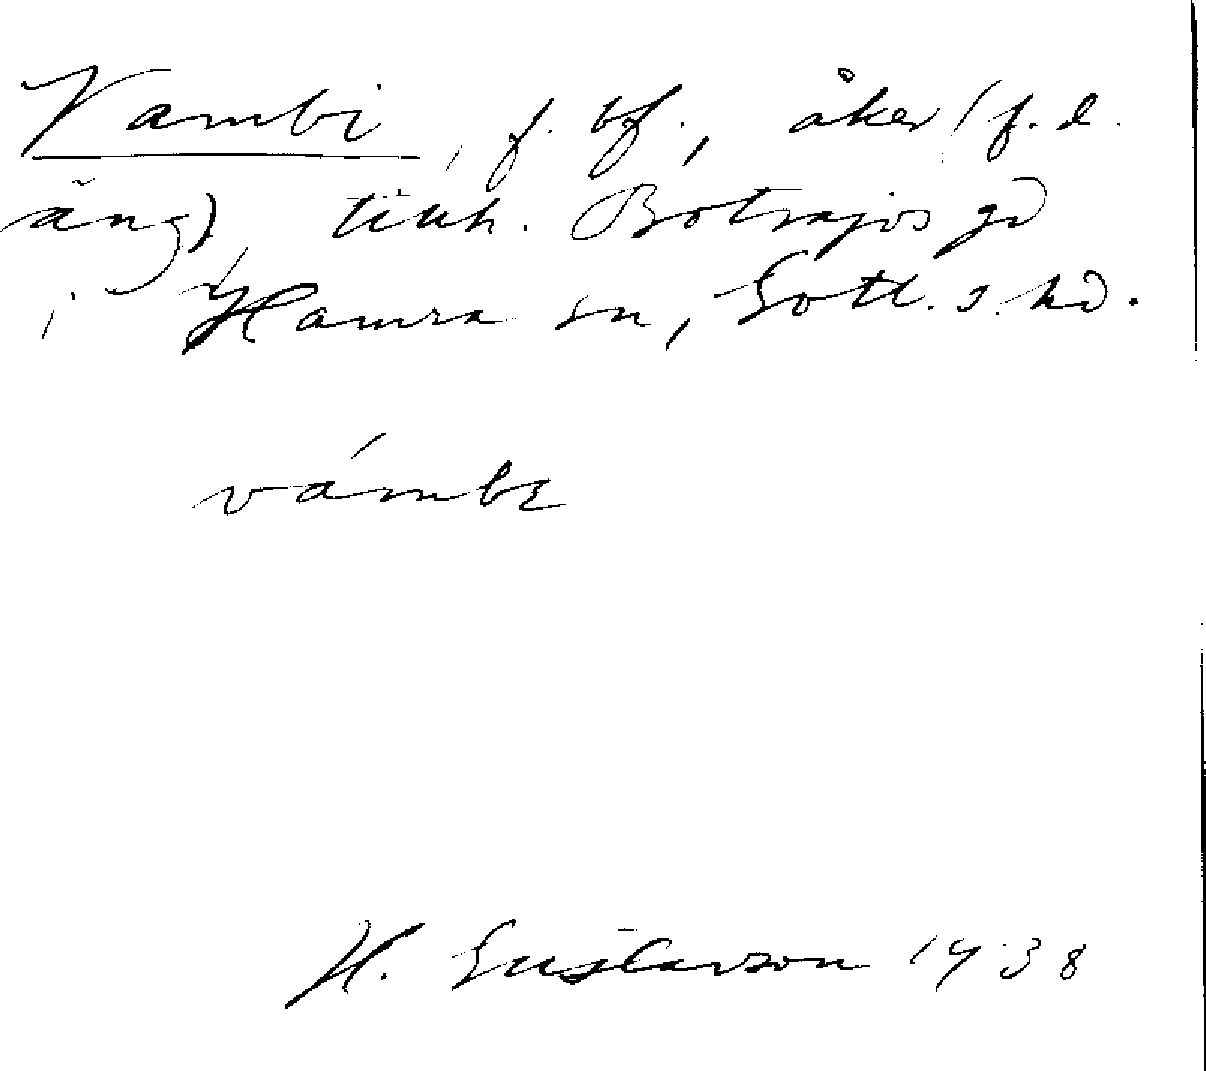 Vambi, f. bf., åker (f.d.
äng), tillh. Botvajvs gd
i Hamra sn, Gotl. s. hd.
vámbε
H. Gustavson 1938